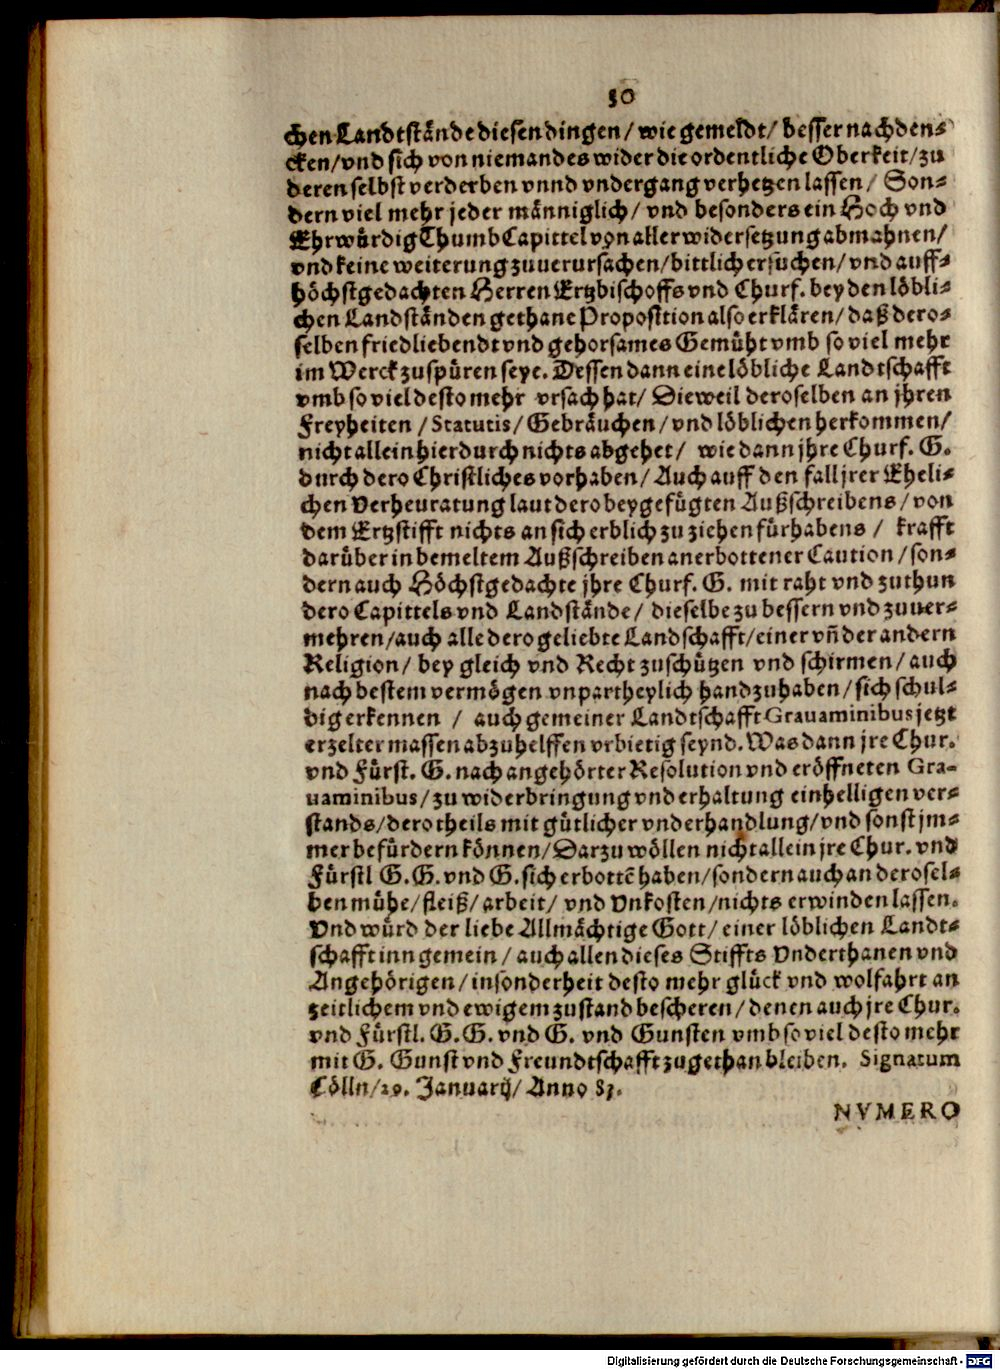 50
chen Landtstände diesen dingen / wie gemeldt / besser nachden⸗
cken / vnd sich von niemandes wider die ordentliche Oberkeit / zu
deren selbst verderben vnnd vndergang verhetzen lassen / Son⸗
dern viel mehr jeder männiglich / vnd besonders ein Hoch vnd
Ehrwürdig Thumb Capittel von aller widersetzung abmahnen /
vnd keine weiterung zuuerursachen / bittlich ersuchen / vnd auff⸗
höchstgedachten Herren Ertzbischoffs vnd Churf. bey den löbli⸗
chen Landständen gethane Proposition also erklären / daß dero⸗
selben friedliebendt vnd gehorsames Gemüht vmb so viel mehr
im Werck zuspüren seye. Dessen dann eine löbliche Landtschafft
vmb so viel desto mehr vrsach hat / Dieweil deroselben an jhren
Freyheiten / Statutis / Gebräuchen / vnd löblichen herkommen /
nicht allein hierdurch nichts abgehet / wie dann jhre Churf. G.
durch dero Christliches vorhaben / Auch auff den fall jrer Eheli⸗
chen Verheuratung laut dero beygefügten Außschreibens / von
dem Ertzstifft nichts an sich erblich zu ziehen fürhabens / krafft
darüber in bemeltem Außschreiben anerbottener Caution / son⸗
dern auch Höchstgedachte jhre Churf. G. mit raht vnd zuthun
dero Capittels vnd Landstände / dieselbe zu bessern vnd zuuer⸗
mehren / auch alle dero geliebte Landschafft / einer vñ der andern
Religion / bey gleich vnd Recht zuschützen vnd schirmen / auch
nach bestem vermögen vnpartheylich handzuhaben / sich schul⸗
dig erkennen / auch gemeiner Landtschafft Grauaminibus jetzt
erzelter massen abzuhelffen vrbietig seynd. Was dann jre Chur.
vnd Fürst. G. nach angehörter Resolution vnd eröffneten Gra-
uaminibus / zu widerbringung vnd erhaltung einhelligen ver⸗
stands / dero theils mit gütlicher vnderhandlung / vnd sonst jm⸗
mer befürdern können / Darzu wöllen nicht allein jre Chur. vnd
Fürstl G. G. vnd G. sich erbottē haben / sondern auch an derosel⸗
ben mühe / fleiß / arbeit / vnd Vnkosten / nichts erwinden lassen.
Vnd würd der liebe Allmächtige Gott / einer löblichen Landt⸗
schafft inn gemein / auch allen dieses Stiffts Vnderthanen vnd
Angehörigen / insonderheit desto mehr glück vnd wolfahrt an
zeitlichem vnd ewigem zustand bescheren / denen auch jre Chur.
vnd Fürstl. G. G. vnd G. vnd Gunsten vmb so viel desto mehr
mit G. Gunst vnd Freundtschafft zugethan bleiben. Signatum
Cölln / 29. Januarij / Anno 83.
NVMERO
Digitalisierung gefördert durch die Deutsche Forschungsgemeinschaft - DFG